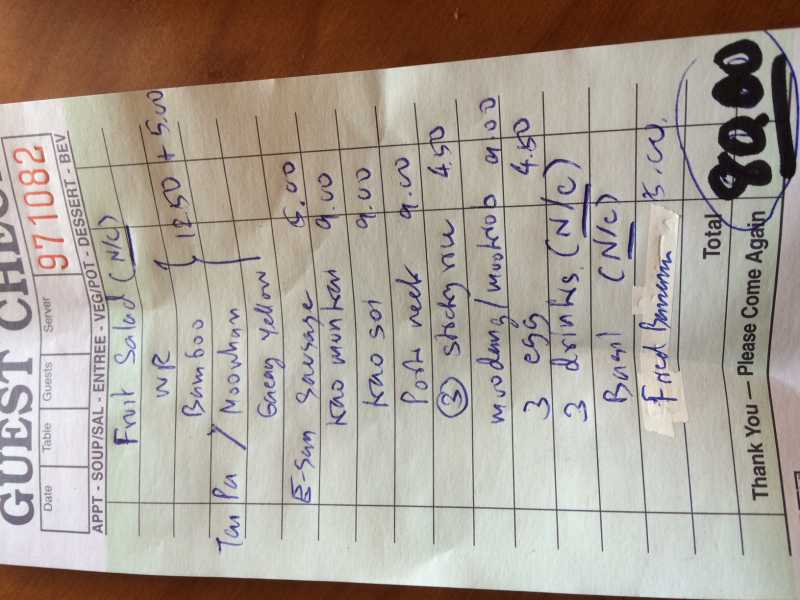 GUEST CHECK
Date Table Guests Server
971082
APPT - SOUP/SAL - ENTREE - VEG/POT - DESSERT - BEV
Fruit Salad (N/C)
WR
Bamboo } 12.50 + 5.00
Tai Pa / Moowhan
Gaeng Yellow
E-San Sausage 5.00
Kao munkai 9.00
Kao soi 9.00
Pork neck 9.00
③ sticky rice 4.50
moodang/mookrob 9.00
3 egg 4.50
3 drinks (N/C)
Basil (N/C)
Fried Banana 5.00
Total 80.00
Thank You — Please Come Again